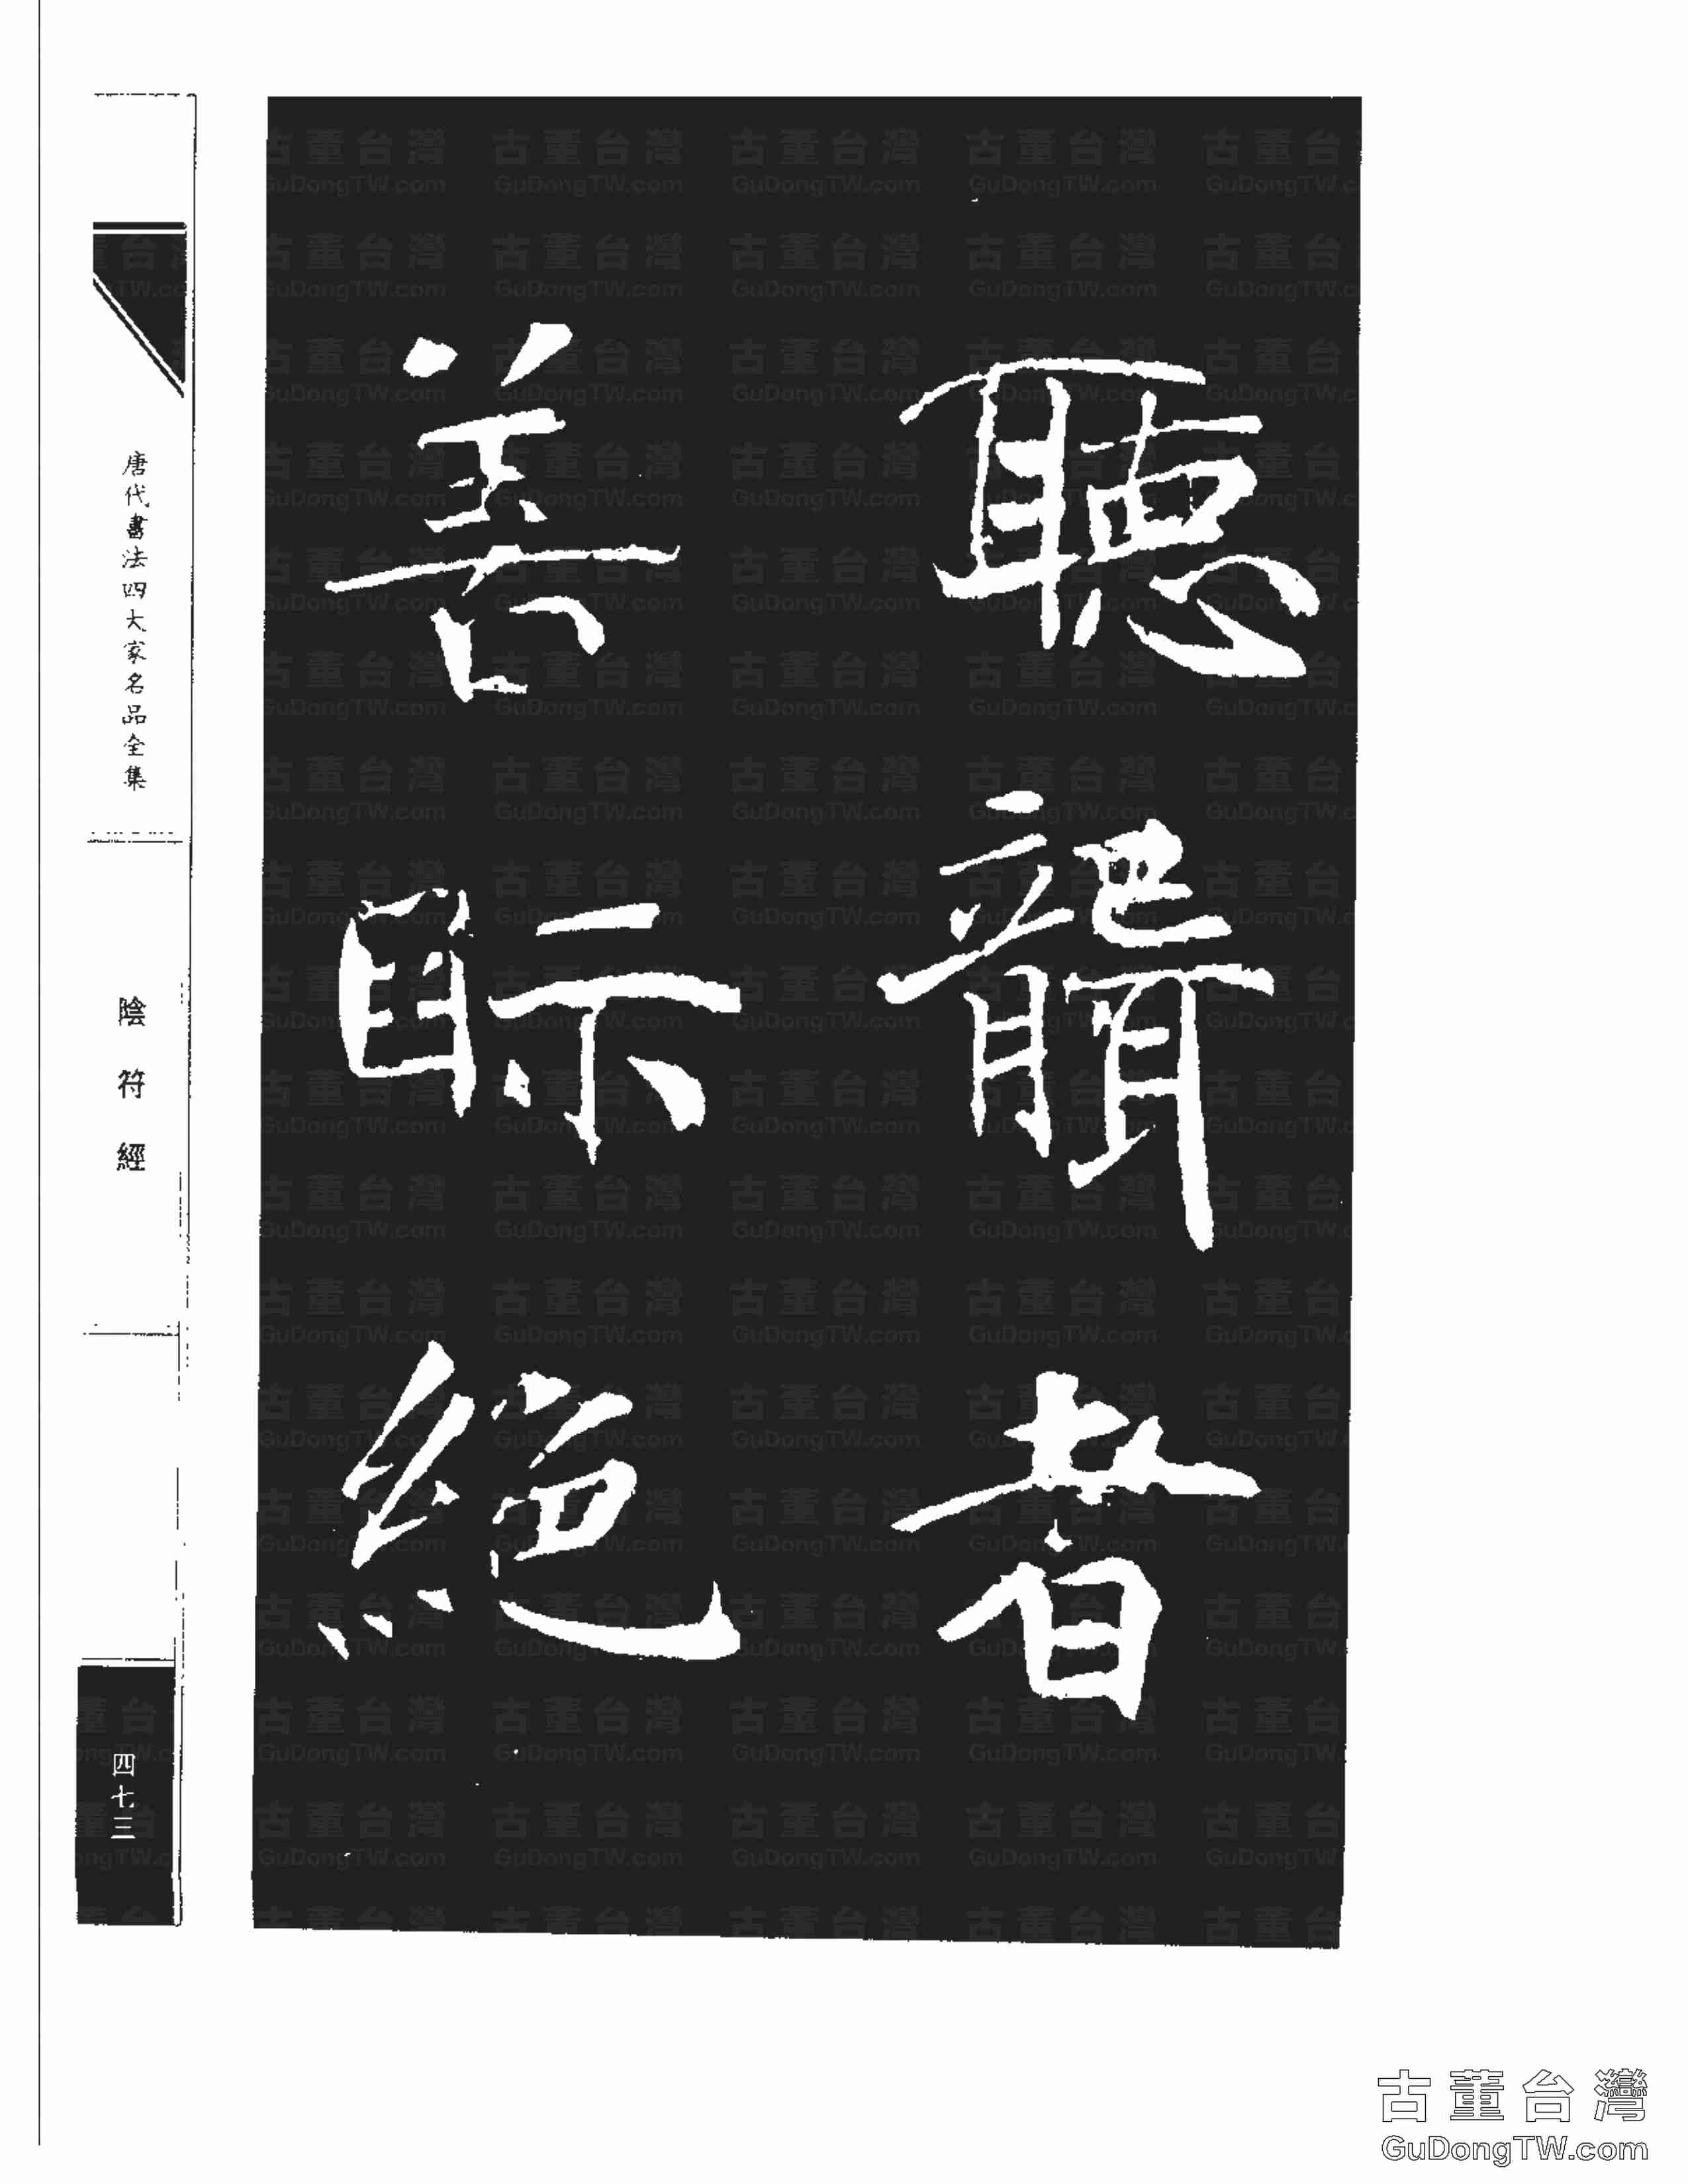 聴聾者
善眎絶
唐代書法四大家名品全集
陰符經
四七三
古董台灣
GuDongTW.com